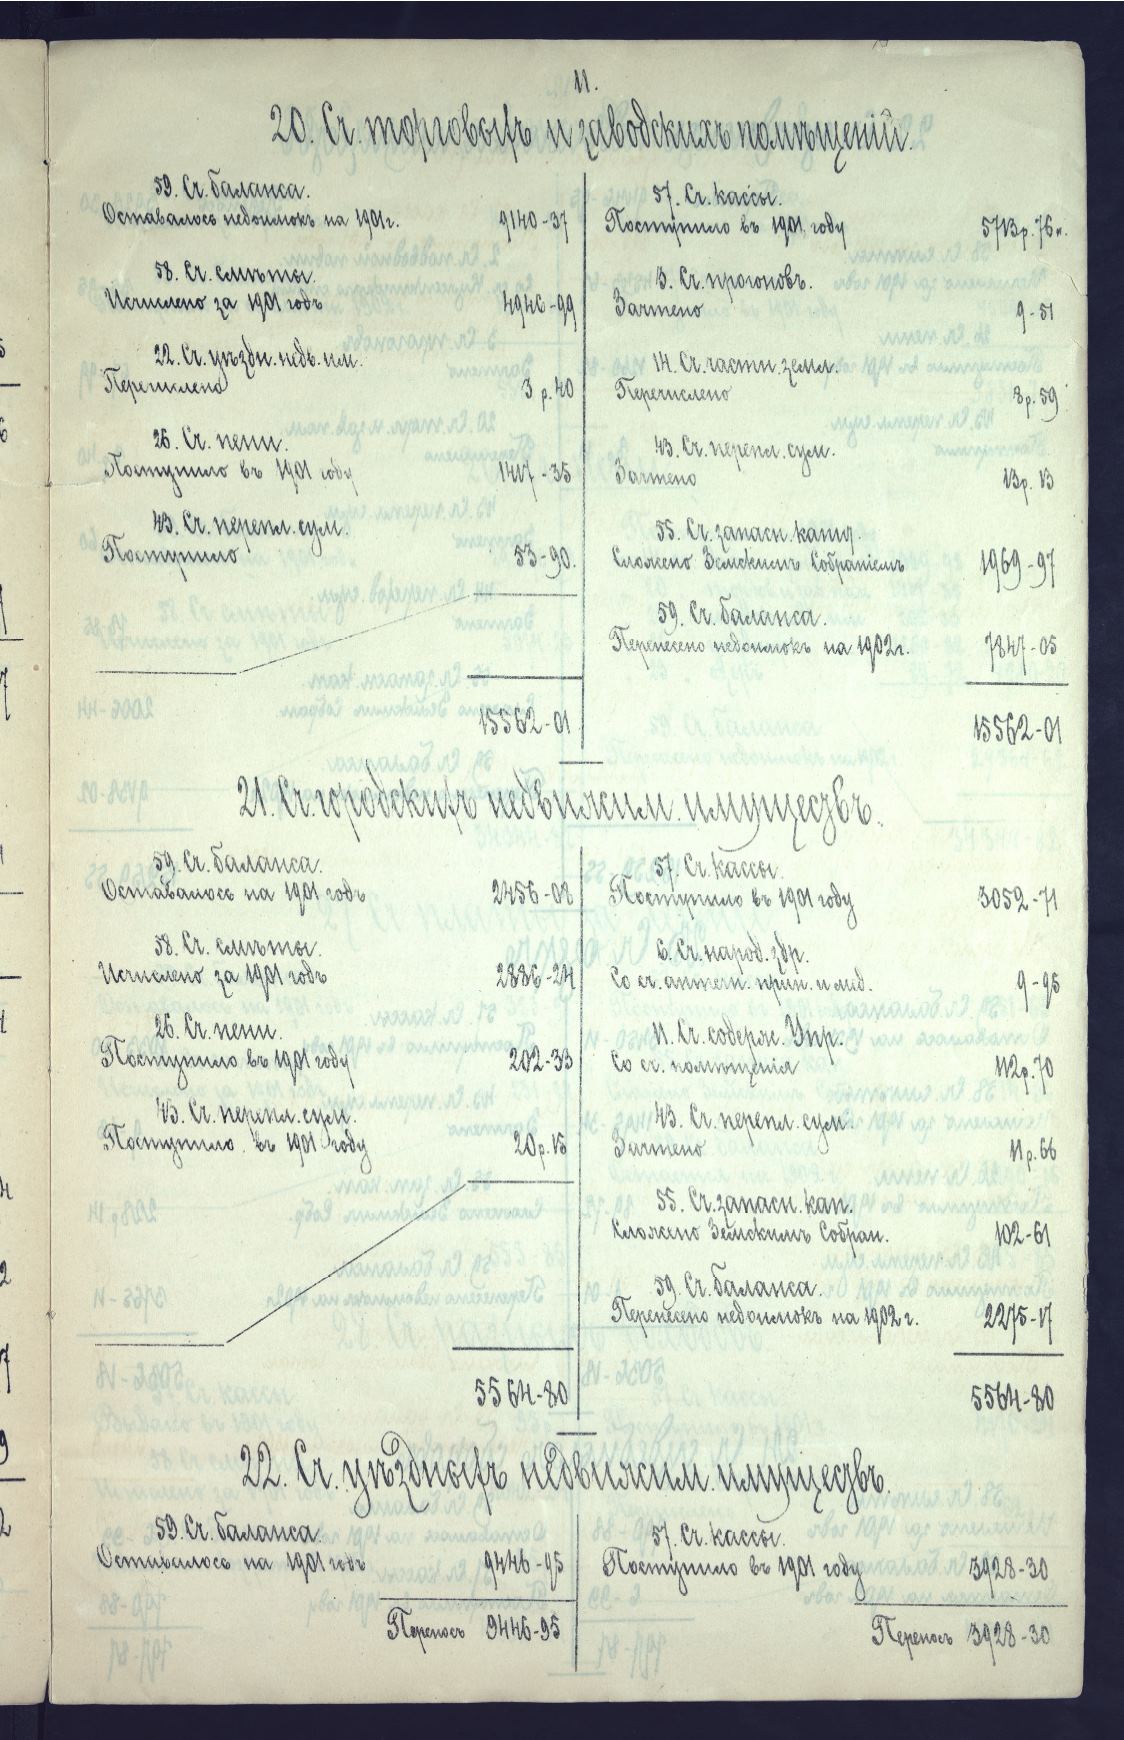 11.
20. Сч. торговыхъ и заводскихъ помѣщеній.
59. Сч. баланса.
Оставалось недоимокъ на 1901 г. 9140-37
58. Сч. смѣты.
Исчислено за 1901 годъ 4946-99
22. Сч. уѣздн. недв. им.
Перечислено 3 р. 40
26. Сч. пени.
Поступило въ 1901 году 1417-35
43. Сч. перепл. сум.
Поступило 53-90.
15562-01
57. Сч. кассы.
Поступило въ 1901 году 5713 р. 76 к.
3. Сч. прогоновъ.
Зачтено 9-51
14. Сч. частн. земл.
Перечислено 8 р. 59
43. Сч. перепл. сум.
Зачтено 13 р. 13
55. Сч. запасн. кап.
Сложено Земскимъ Собраніемъ 1969-97
59. Сч. баланса.
Перенесено недоимокъ на 1902 г. 7847-05
15562-01
21. Сч. городскихъ недвижим. имуществъ.
59. Сч. баланса.
Оставалось на 1901 годъ 2456-08
58. Сч. смѣты.
Исчислено за 1901 годъ 2886-24
26. Сч. пени.
Поступило въ 1901 году 202-33
43. Сч. перепл. сум.
Поступило въ 1901 году 20 р. 15
5564-80
57. Сч. кассы.
Поступило въ 1901 году 3052-71
6. Сч. народ. здр.
Со сч. аптечн. прип. и мед. 9-95
11. Сч. содерж. Упр.
Со сч. помѣщенія 112 р. 70
43. Сч. перепл. сум.
Зачтено 11 р. 66
55. Сч. запасн. кап.
Сложено Земскимъ Собран. 102-61
59. Сч. баланса.
Перенесено недоимокъ на 1902 г. 2275-17
5564-80
22. Сч. уѣздныхъ недвижим. имуществъ.
59. Сч. баланса.
Оставалось на 1901 годъ 9446-95
Переносъ 9446-95
57. Сч. кассы.
Поступило въ 1901 году 3928-30
Переносъ 3928-30